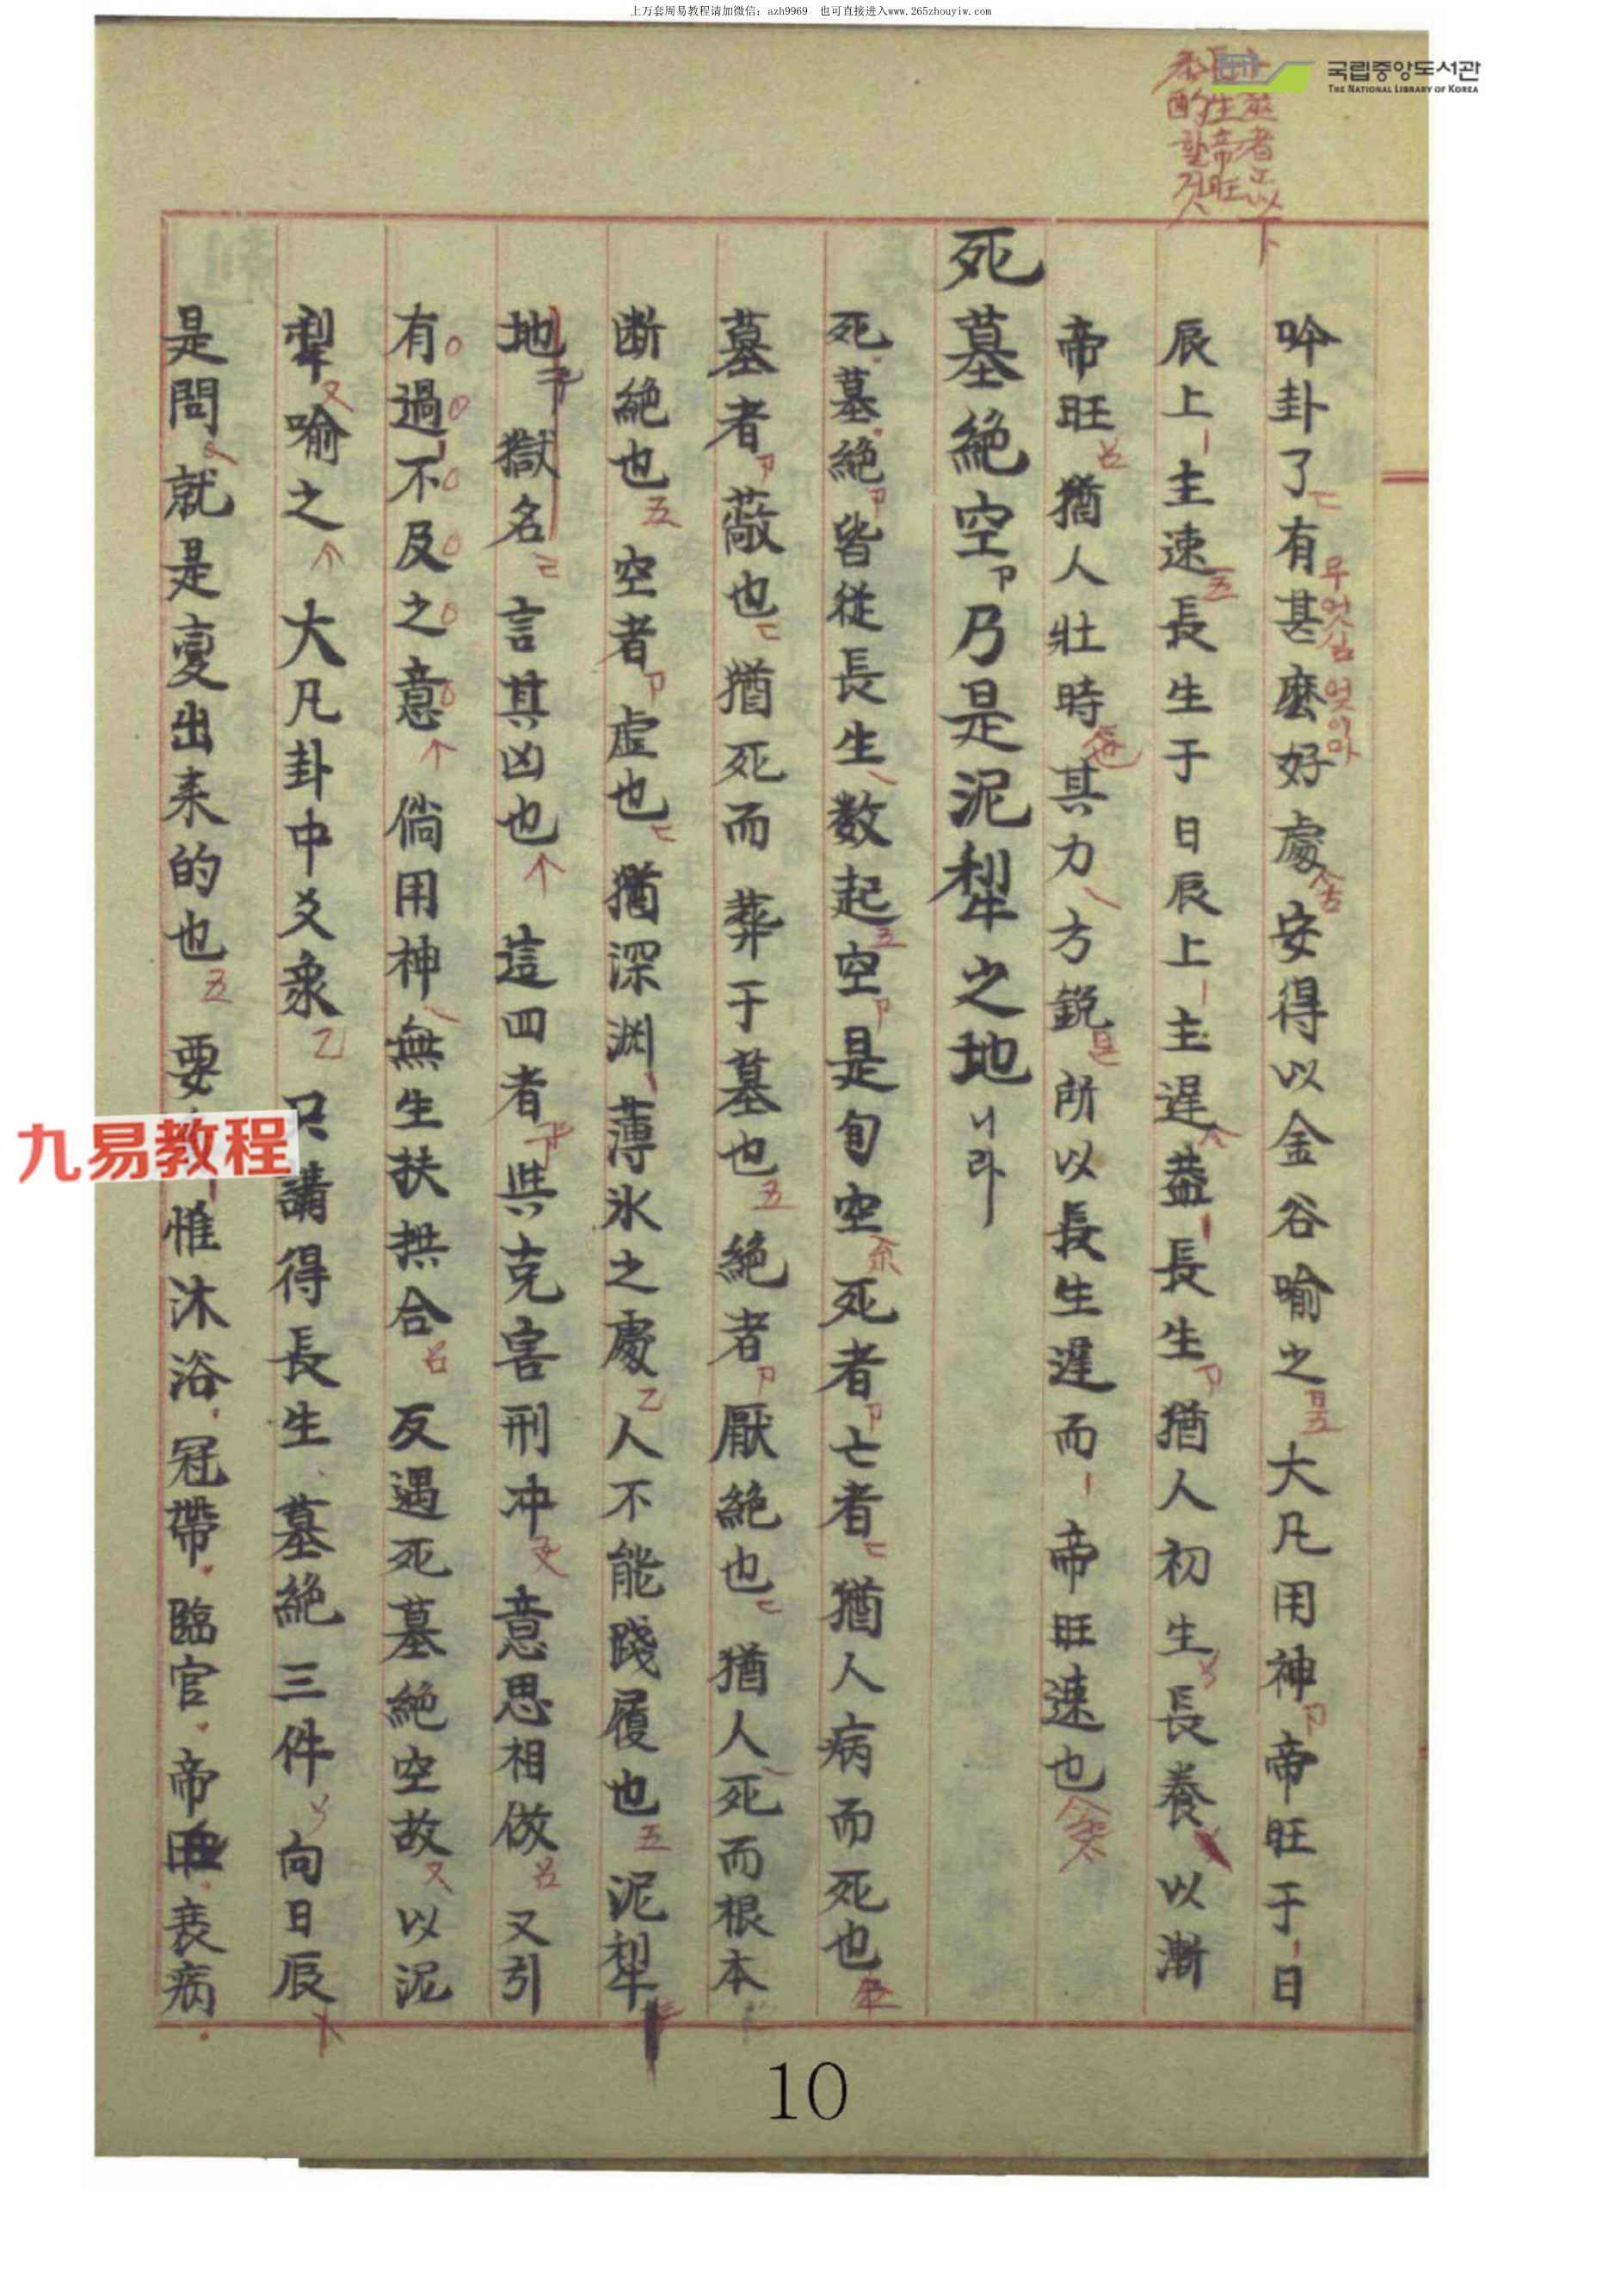 上万套周易教程请加微信：azh9969　也可直接进入www.265zhouyiw.com
국립중앙도서관
THE NATIONAL LIBRARY OF KOREA
吟卦了有甚麽好處安得以金谷喻之大凡用神帝旺于日
무엇심 엇이마
辰上主速長生于日辰上主遲盖長生猶人初生長養以漸
帝旺猶人壯時其力方銳所以長生遲而帝旺速也
死墓絕空卩乃是泥犁之地ㅣ니라
死墓絕皆從長生数起空是旬空死者亡者猶人病而死也
墓者蔽也猶死而葬于墓也絕者厭絕也猶人死而根本
断絕也空者虛也猶深渊薄氷之處人不能践履也泥犁
地獄名言其凶也這四者與克害刑冲意思相倣又引
有過不及之意倘用神無生扶拱合反遇死墓絕空故以泥
犁喻之大凡卦中爻象只講得長生墓絕三件向日辰
是問就是变出来的也要惟沐浴冠帶臨官帝旺衰病
九易教程
10